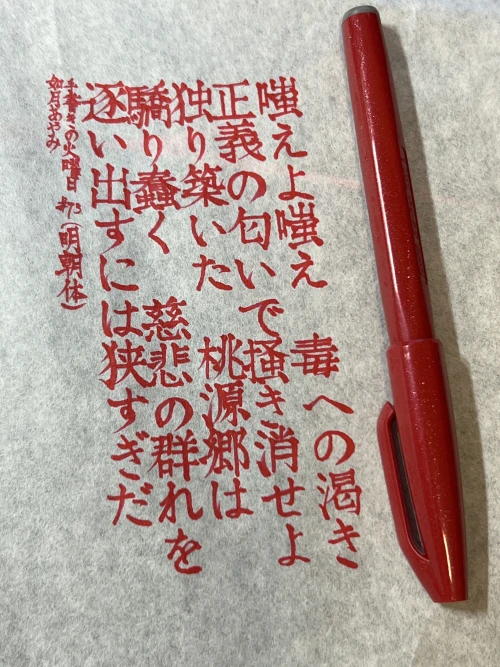 嗤えよ嗤え　毒への渇き
正義の匂いで掻き消せよ
独り築いた　桃源郷は
驕り蠢く　慈悲の群れを
逐い出すには狭すぎだ
手書きの火曜日 #75 (明朝体)
如月あやみ